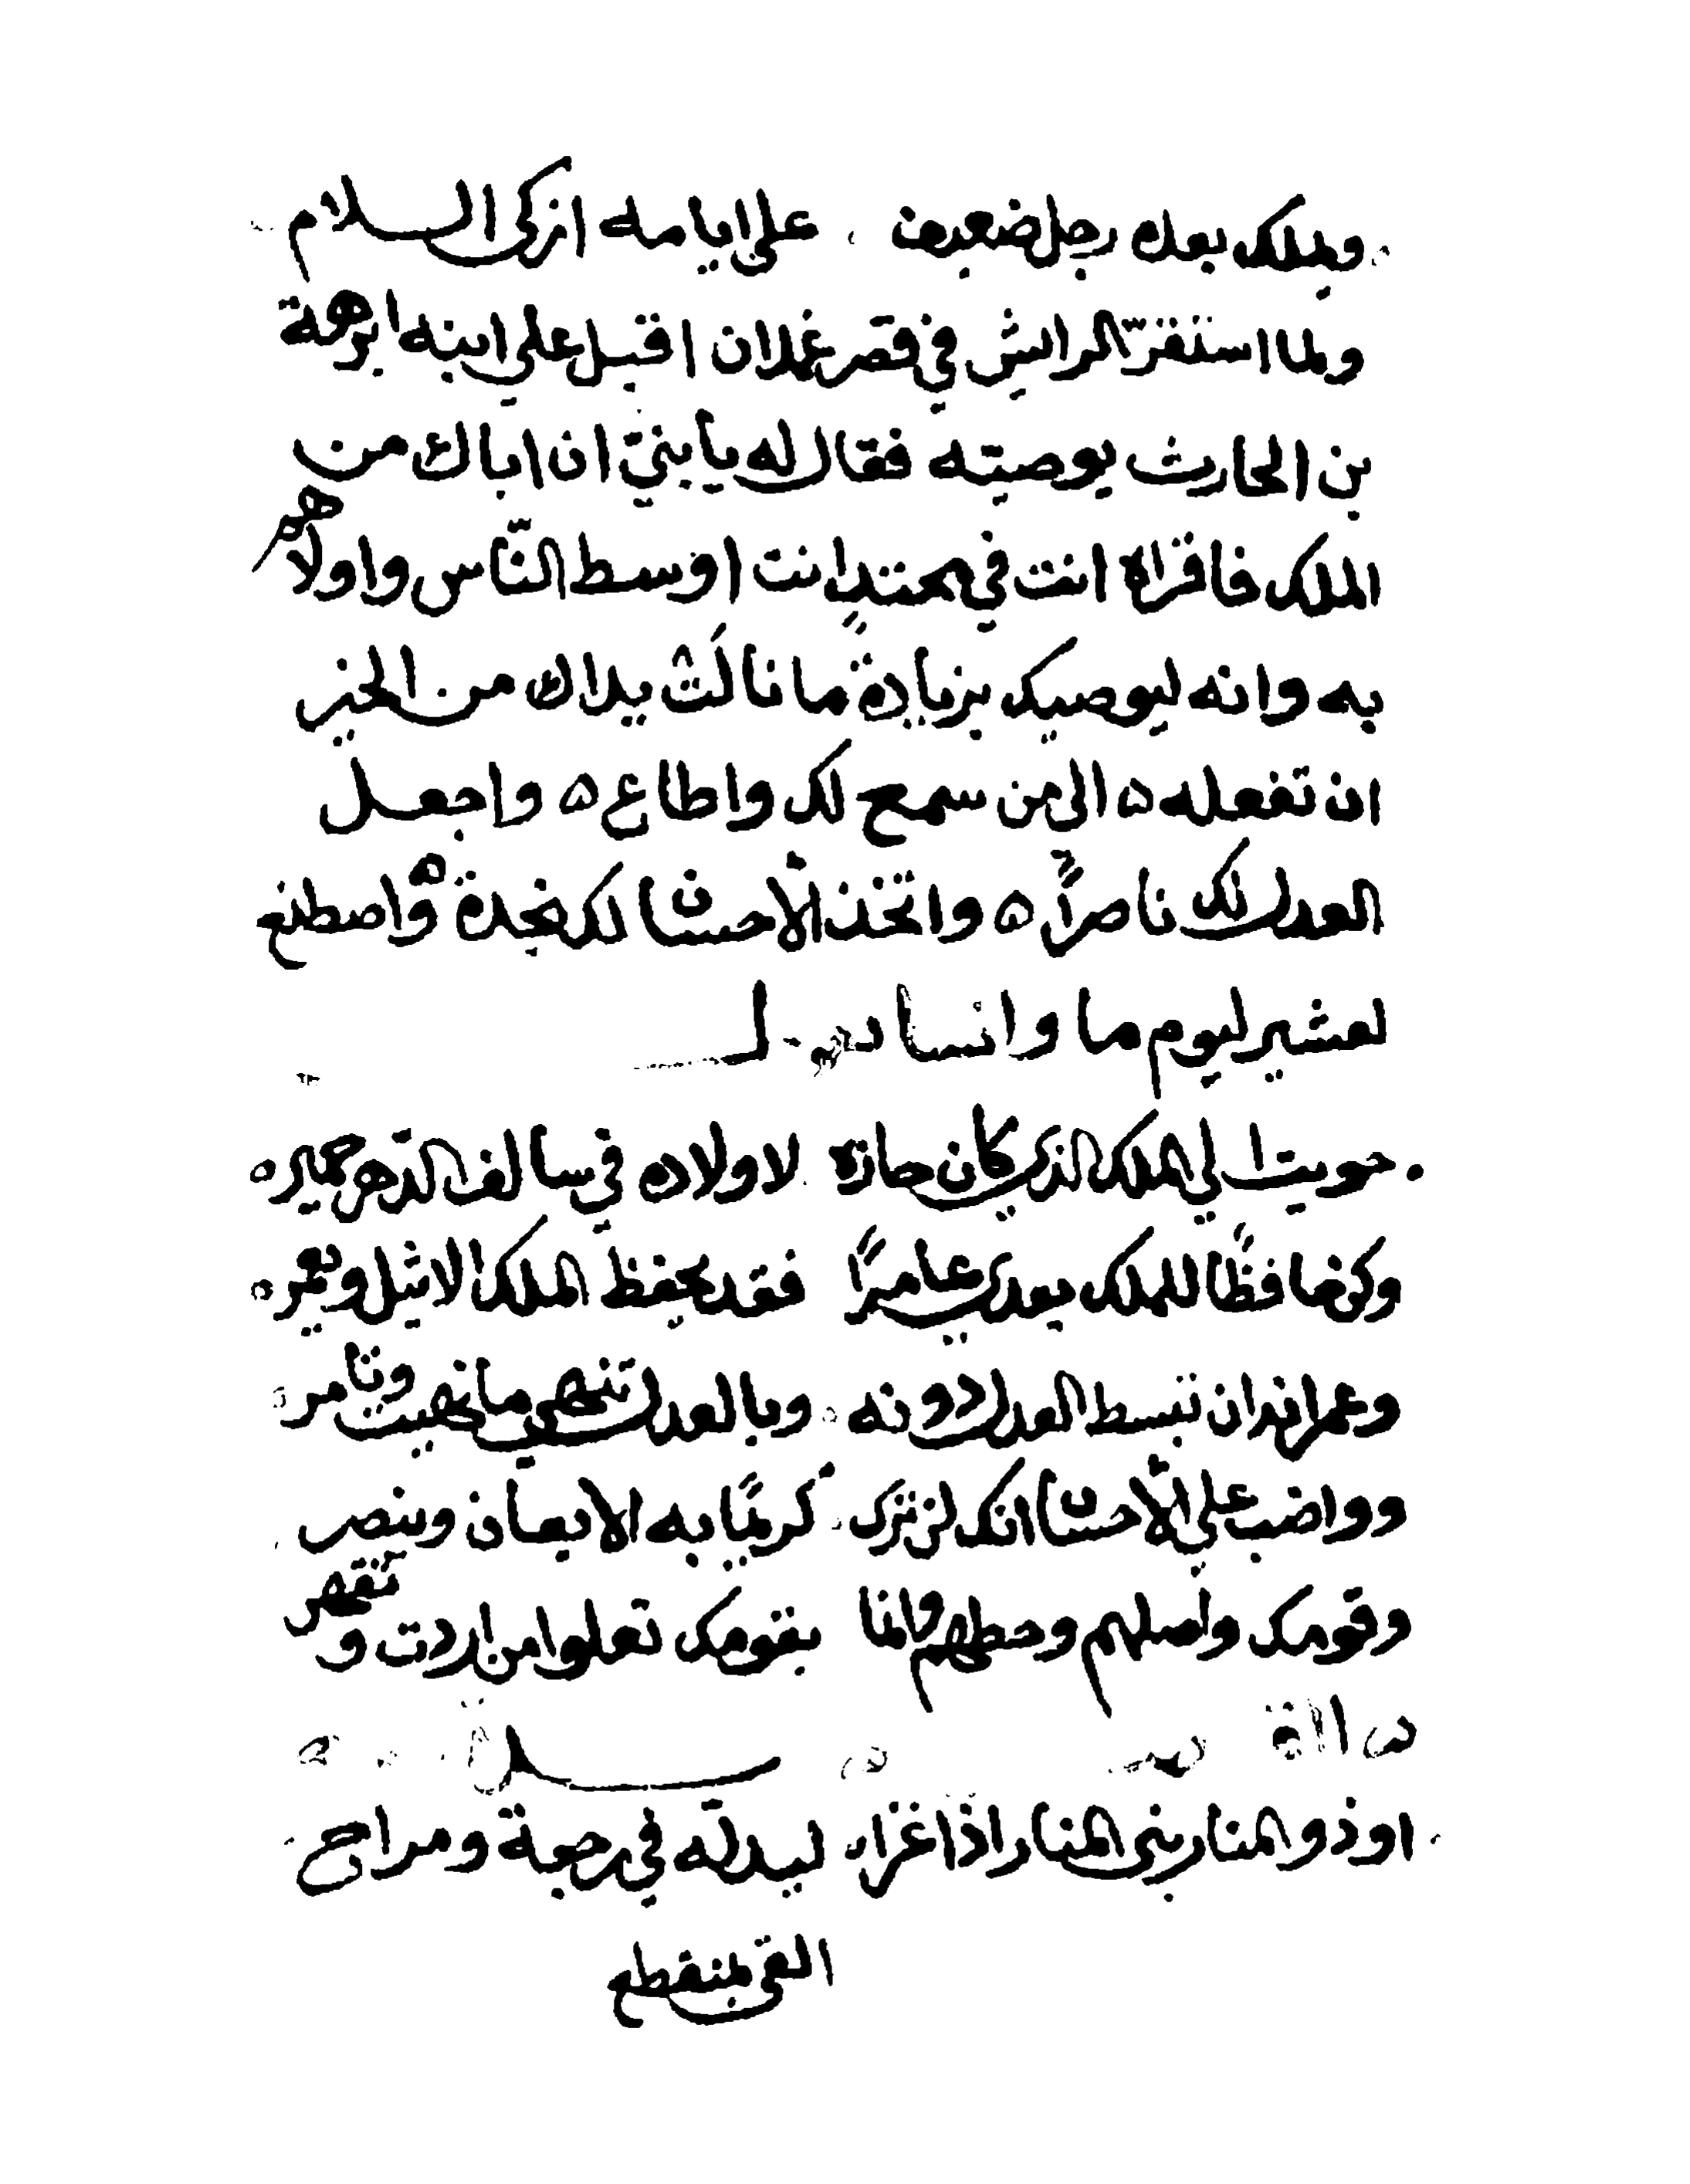 ويملك بعده رجل ضعيف على ايامه ازكى السلام
ولما استقرّ الرايش في قصر غمدان اقبل علي ابنه ابرهة
بن الحارث يوصيته فقال له يا بنيّ ان اباك من
الملك فاقراه انت في محتدٍ انت اوسط النّاس واولاهم
به وانه ليوصيك بزيادة ما نالت يداك من الخير
ان تفعله ه الى من سمع لك واطاع ه واجعل
العدل لك ناصراً ه واتخذ الأحسان لك نجدة ه واصطنع
لعشير ليوم ما وانسا
حويت الي الملك الذي كان حازه لاولاده في سالف الدّهر حمير ه
وكن حافظًا للملك بعدي عامراً فقد يحفظ الملك الاثيل ويعمر ه
وعمرانه ان تبسط العدل دونه وبالعدل تنهي ما نهيت وتامر
وواضب علي الأحسان انك لن ترى كريمًا به الا يعان وينصر
وقومك واصلهم وحطهم وانما بقومك تعلوا من اردت وتقهر
اوذو المنار بنى المنار اذا غزا ليدلّه في رجعة ومراح
القي بمنقطع